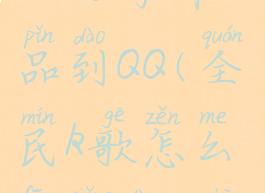 pǐn dào quán
品到QQ(全
mín gē zěn me
民K歌怎么